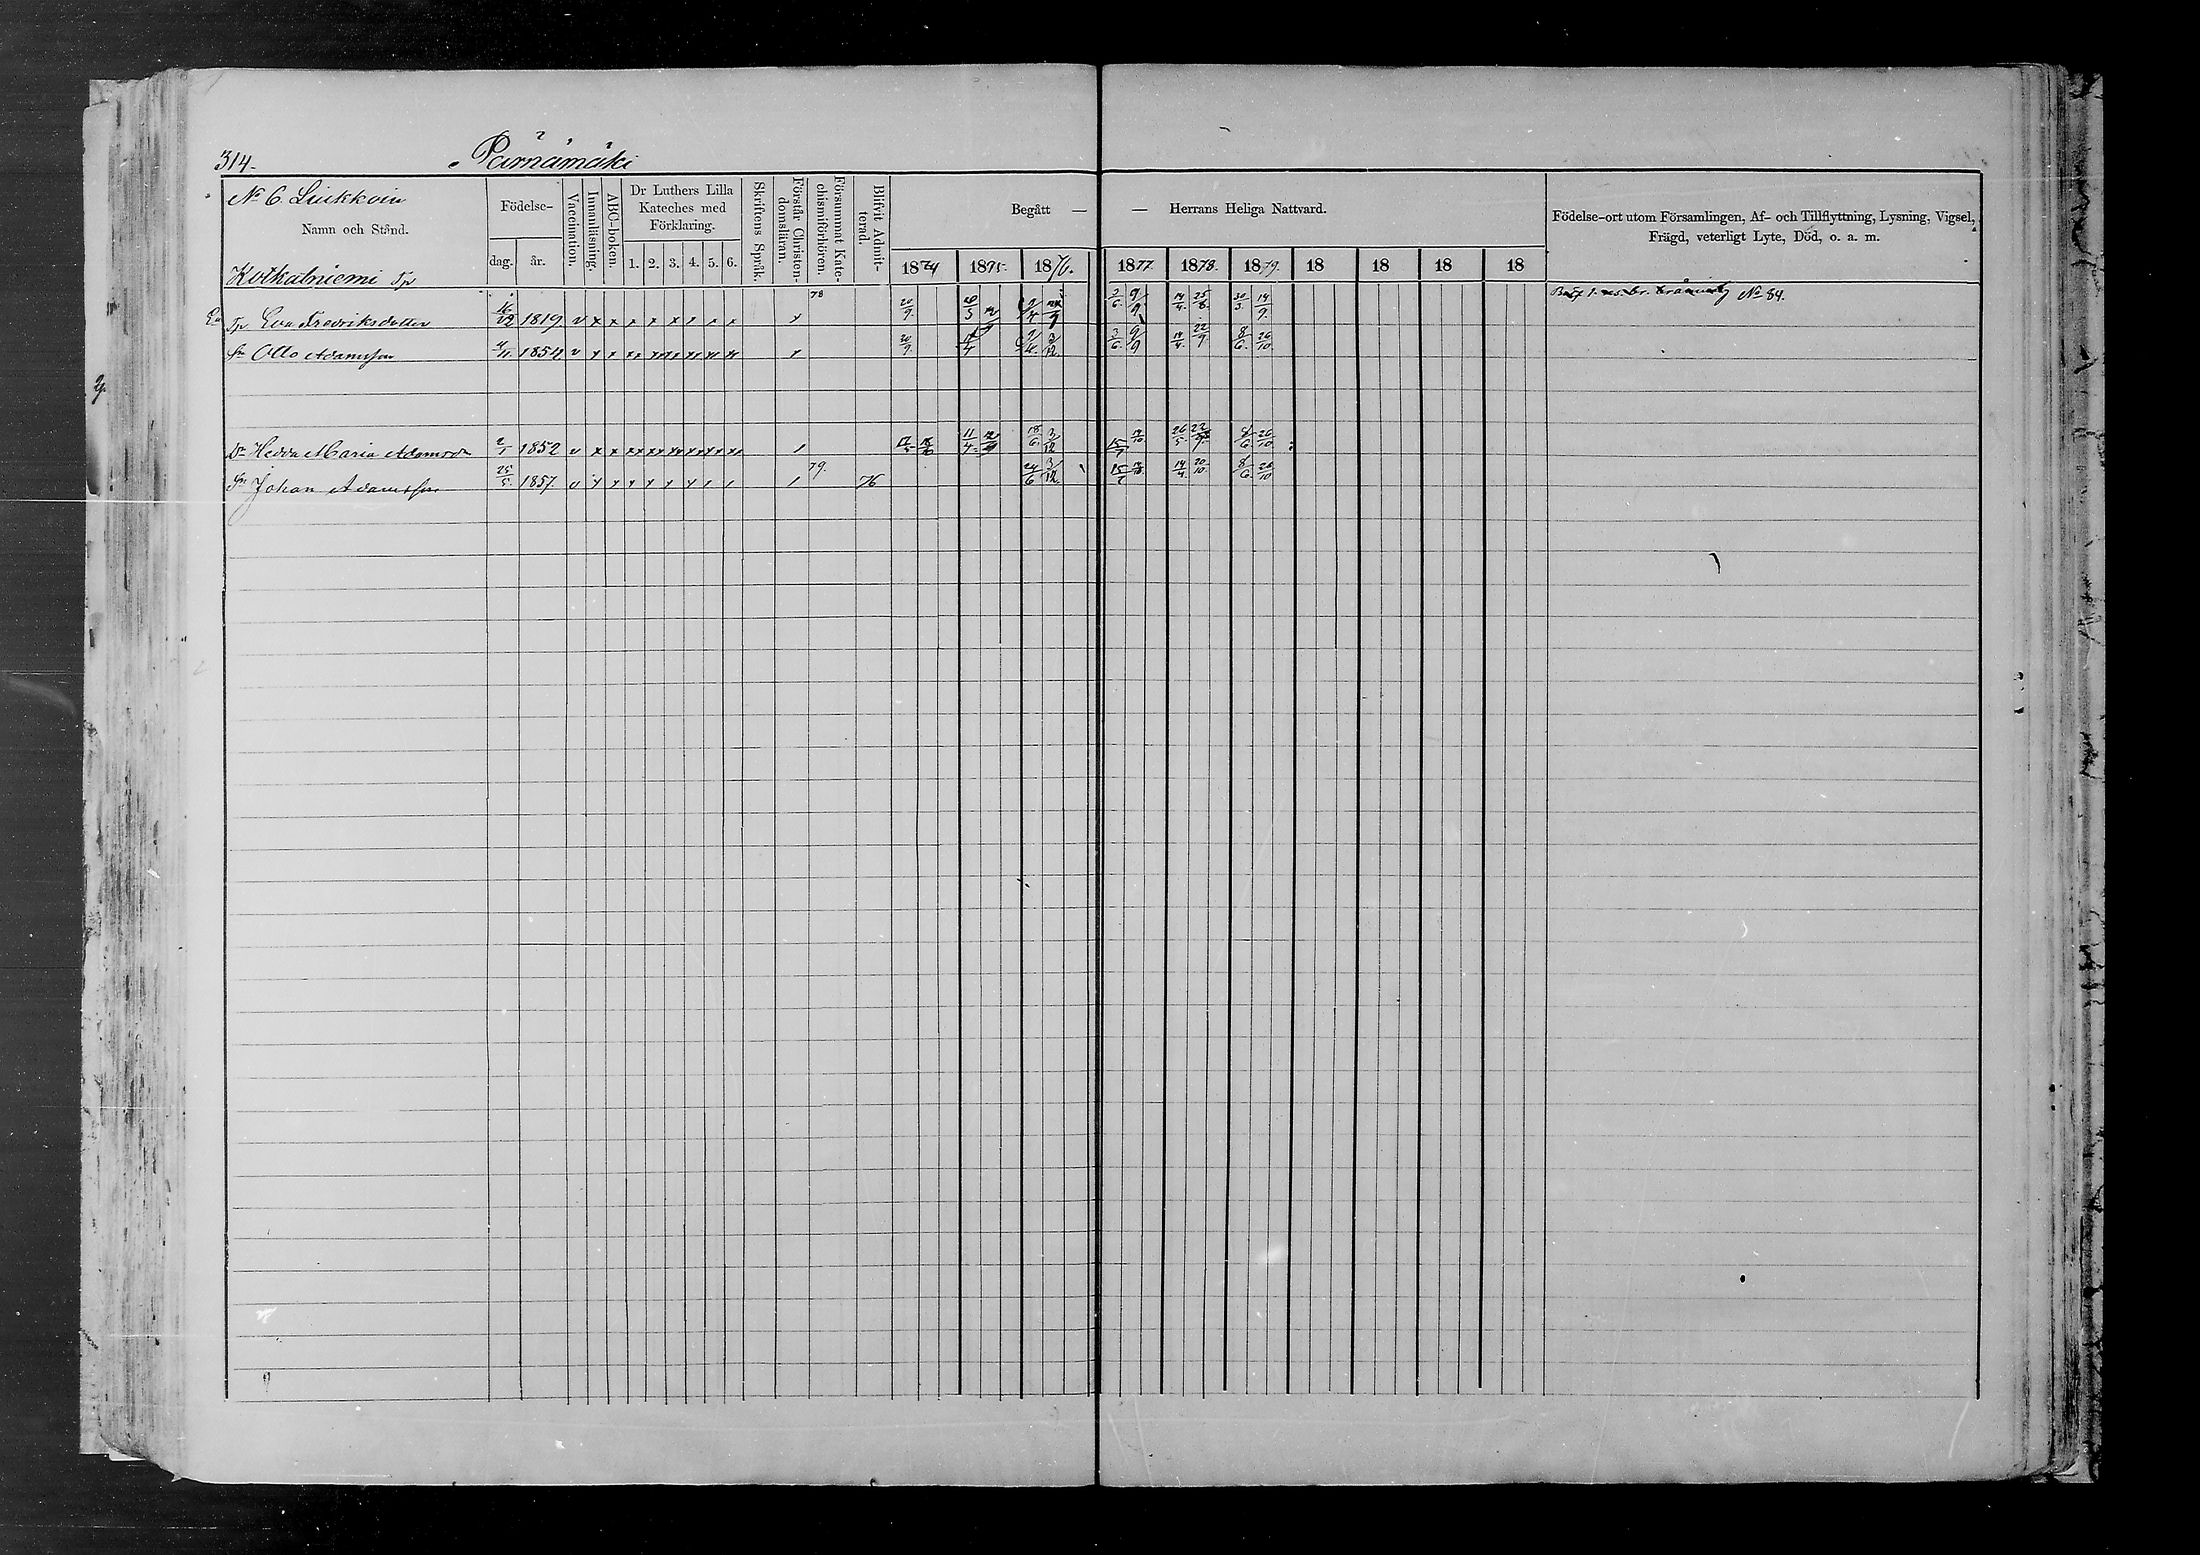 314. Pärnämäki
No 6. Liukkoin
Namn och Stånd.
Födelse-
dag. år.
Vaccination.
Innanläsning.
ABC-boken.
Dr Luthers Lilla
Kateches med
Förklaring.
1. 2. 3. 4. 5. 6.
Skriftens Språk.
Förstår Christen-
domsläran.
Försummat Kate-
chismiförhören.
Blifvit Admit-
terad.
Begått — — Herrans Heliga Nattvard.
1874 1875. 1876. 1877. 1878. 1879. 18 18 18 18
Födelse-ort utom Församlingen, Af- och Tillflyttning, Lysning, Vigsel,
Frägd, veterligt Lyte, Död, o. a. m.
Kotkatniemi Tp
Tp. Eva Fredriksdotter 16/12 1819 v x x x x x x x x x 78 20/9 2/6 9/9 14/4 25/8 30/3 14/9 No 84.
Sn Otto Adamsson 4/11 1854 v x x xx xx xx xx xx xx x 20/9 3/6 9/9 14/4 22/9 8/6 26/10
Dr Hedda Maria 2/1 1852 v x x xx xx xx xx xx xx 11/4 18/6 3/12 15/7 14/10 26/5 8/6 26/10
Sn Johan Adamsson 25/5 1857. v x x x x x x 79. 76 24/6 3/12 15/7 14/10 14/4 20/10 8/6 26/10